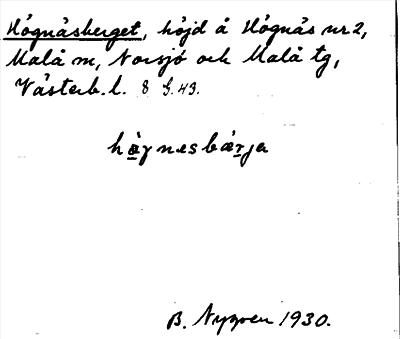 Högnäsberget, höjd å Högnäs nr 2,
Malå sn, Norsjö och Malå tg,
Västerb. l. 8 G. 43.
hö̀γnesbær̲ja
B. Nygren 1930.